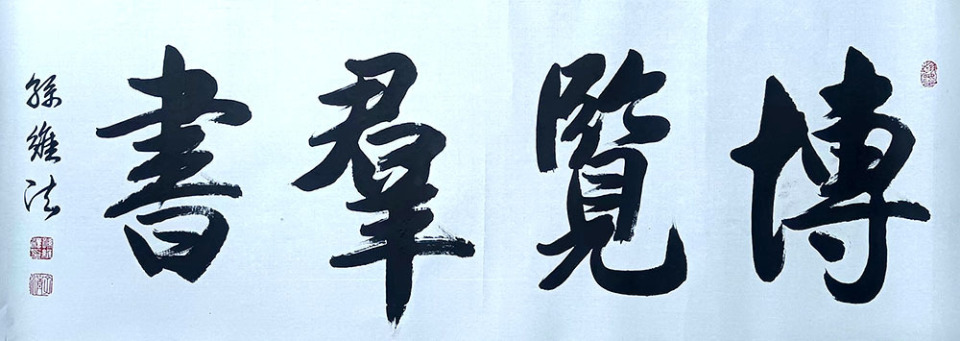 博覽羣書
孫維法